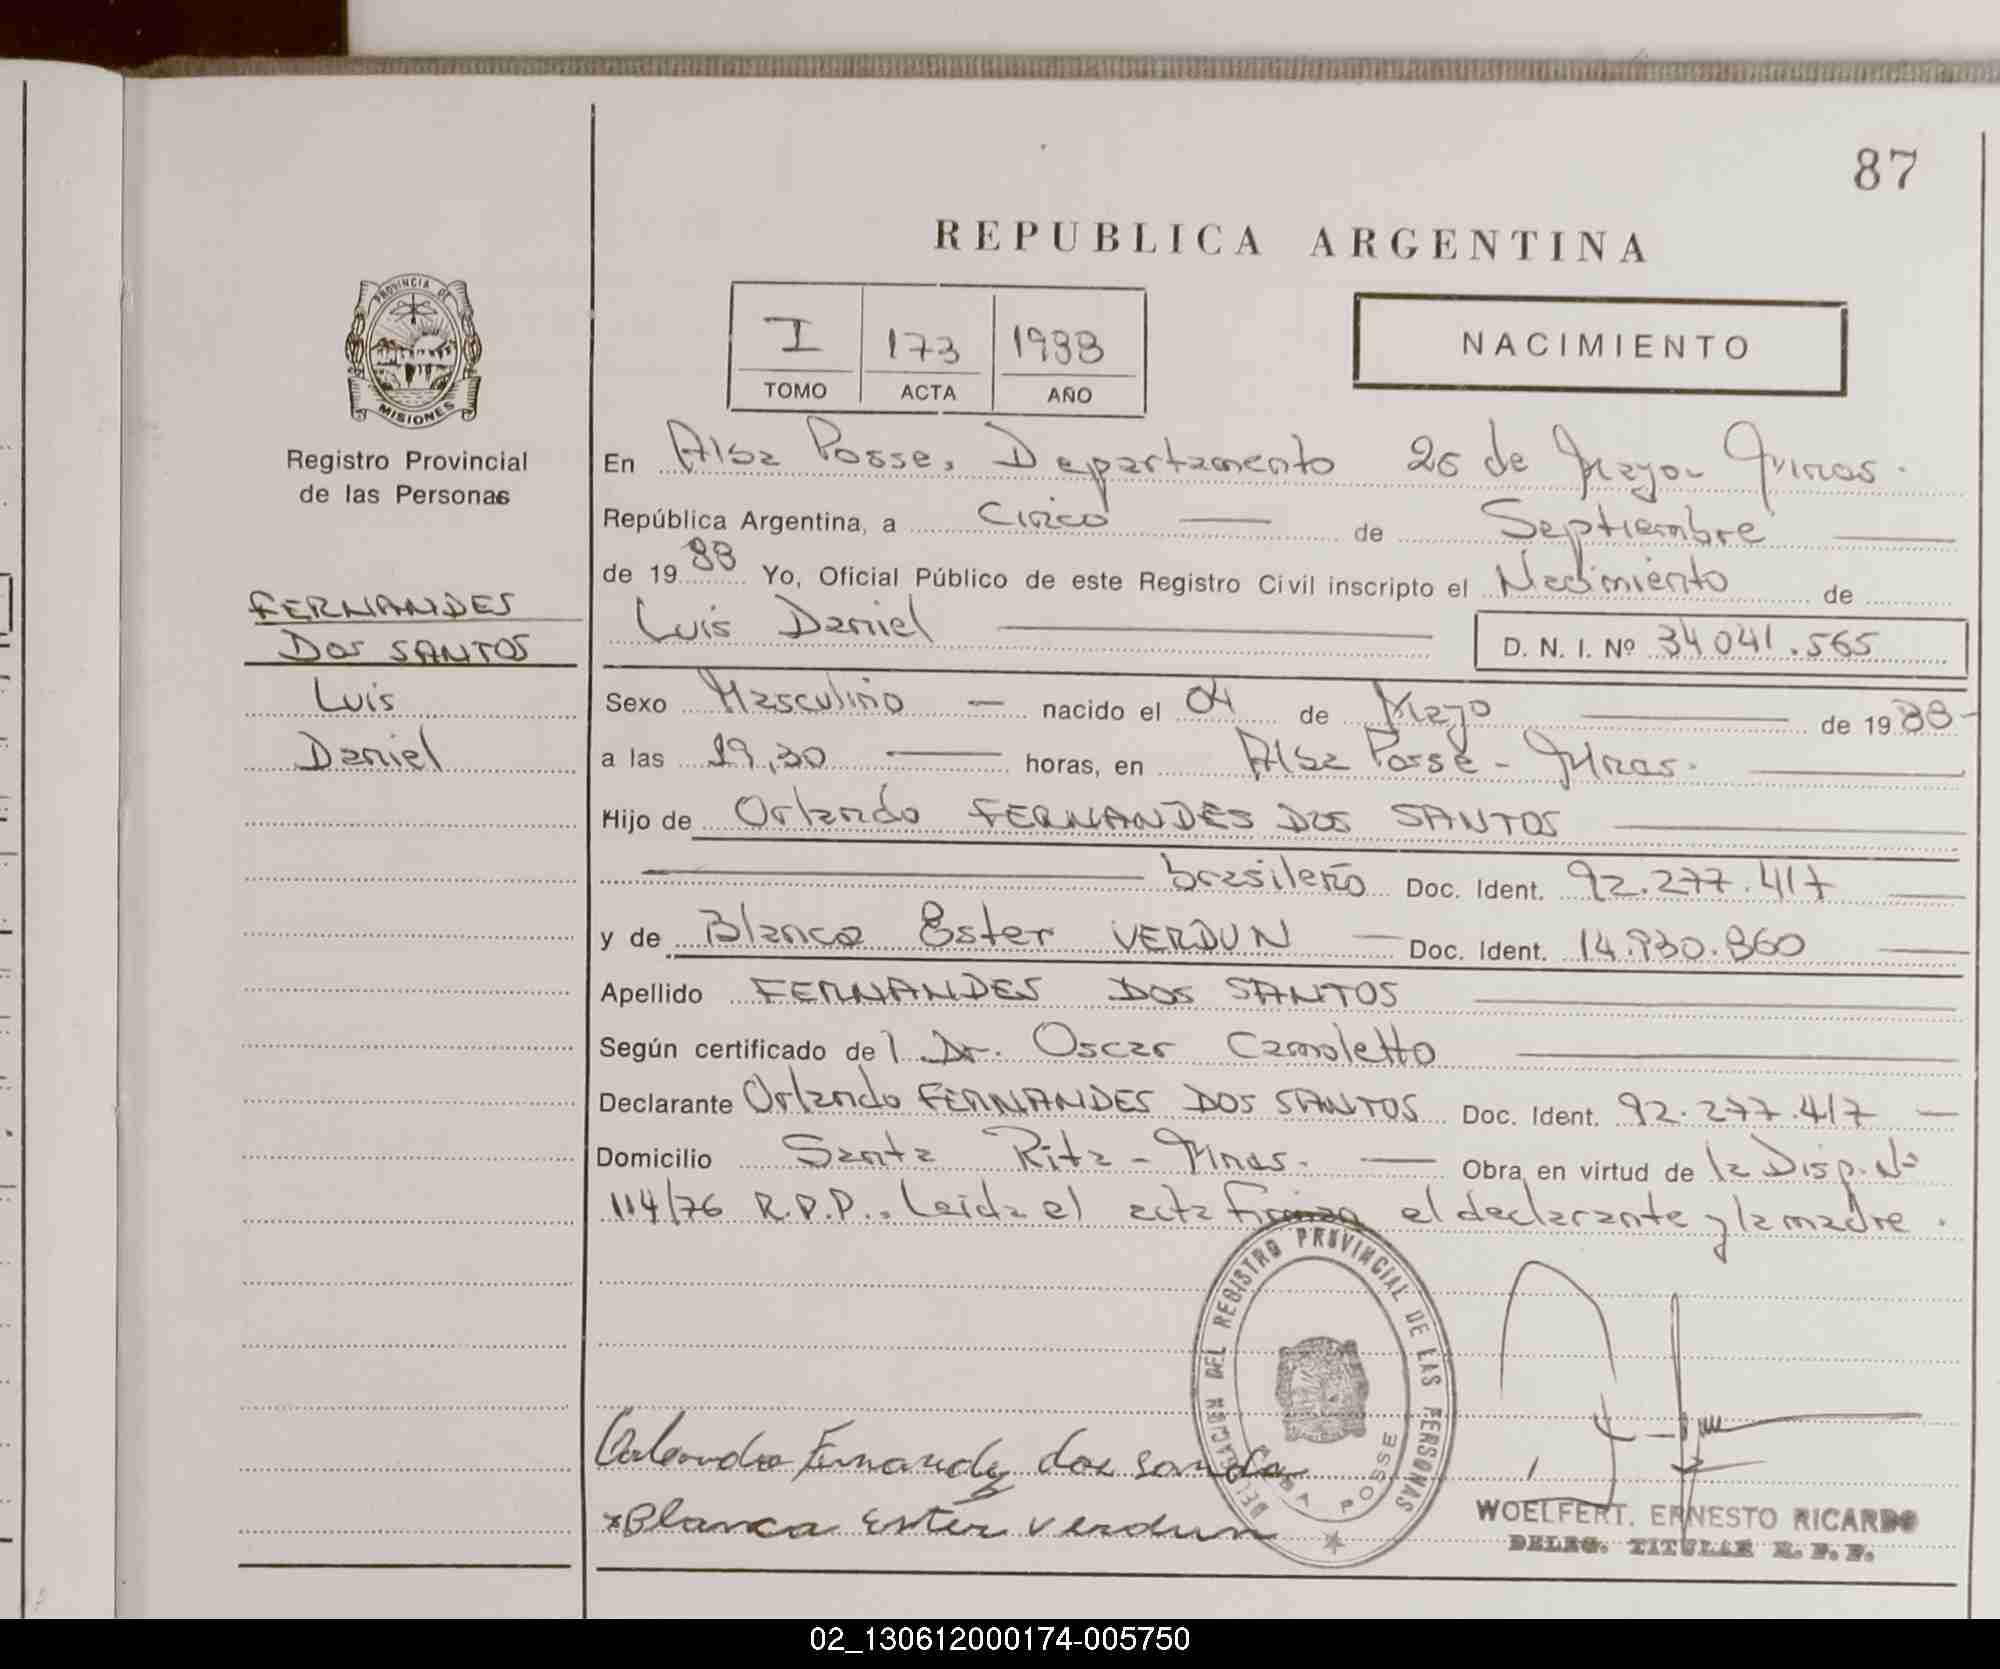 87
REPUBLICA ARGENTINA
PROVINCIA DE
MISIONES
Registro Provincial
de las Personas
I 173 1988
TOMO ACTA AÑO
NACIMIENTO
FERNANDES
DOS SANTOS
Luis
Daniel
En Alba Posse, Departamento 25 de Mayo- Mnes.
República Argentina, a Cinco de Septiembre
de 1988 Yo, Oficial Público de este Registro Civil inscripto el Nacimiento de
Luis Daniel D. N. I. Nº 34 041.565
Sexo Masculino nacido el 04 de Mayo de 1988-
a las 19,30 horas, en Alba Posse - Mnes.
Hijo de Orlando FERNANDES DOS SANTOS
brasileño Doc. Ident. 92.277.417
y de Blanca Ester VERDUN Doc. Ident. 14.930.860
Apellido FERNANDES DOS SANTOS
Según certificado del Dr. Oscar Camoletto
Declarante Orlando FERNANDES DOS SANTOS Doc. Ident. 92.277.417
Domicilio Santa Rita - Mnes. Obra en virtud de la Disp. Nº
114/76 R.P.P.. Leida el acta firman el declarante y la madre.
DELEGACION DEL REGISTRO PROVINCIAL DE LAS PERSONAS
ALBA POSSE
Orlando Fernandes dos santos
x Blanca Ester Verdun
WOELFERT. ERNESTO RICARDO
DELEG. TITULAR R. P. P.
02_130612000174-005750